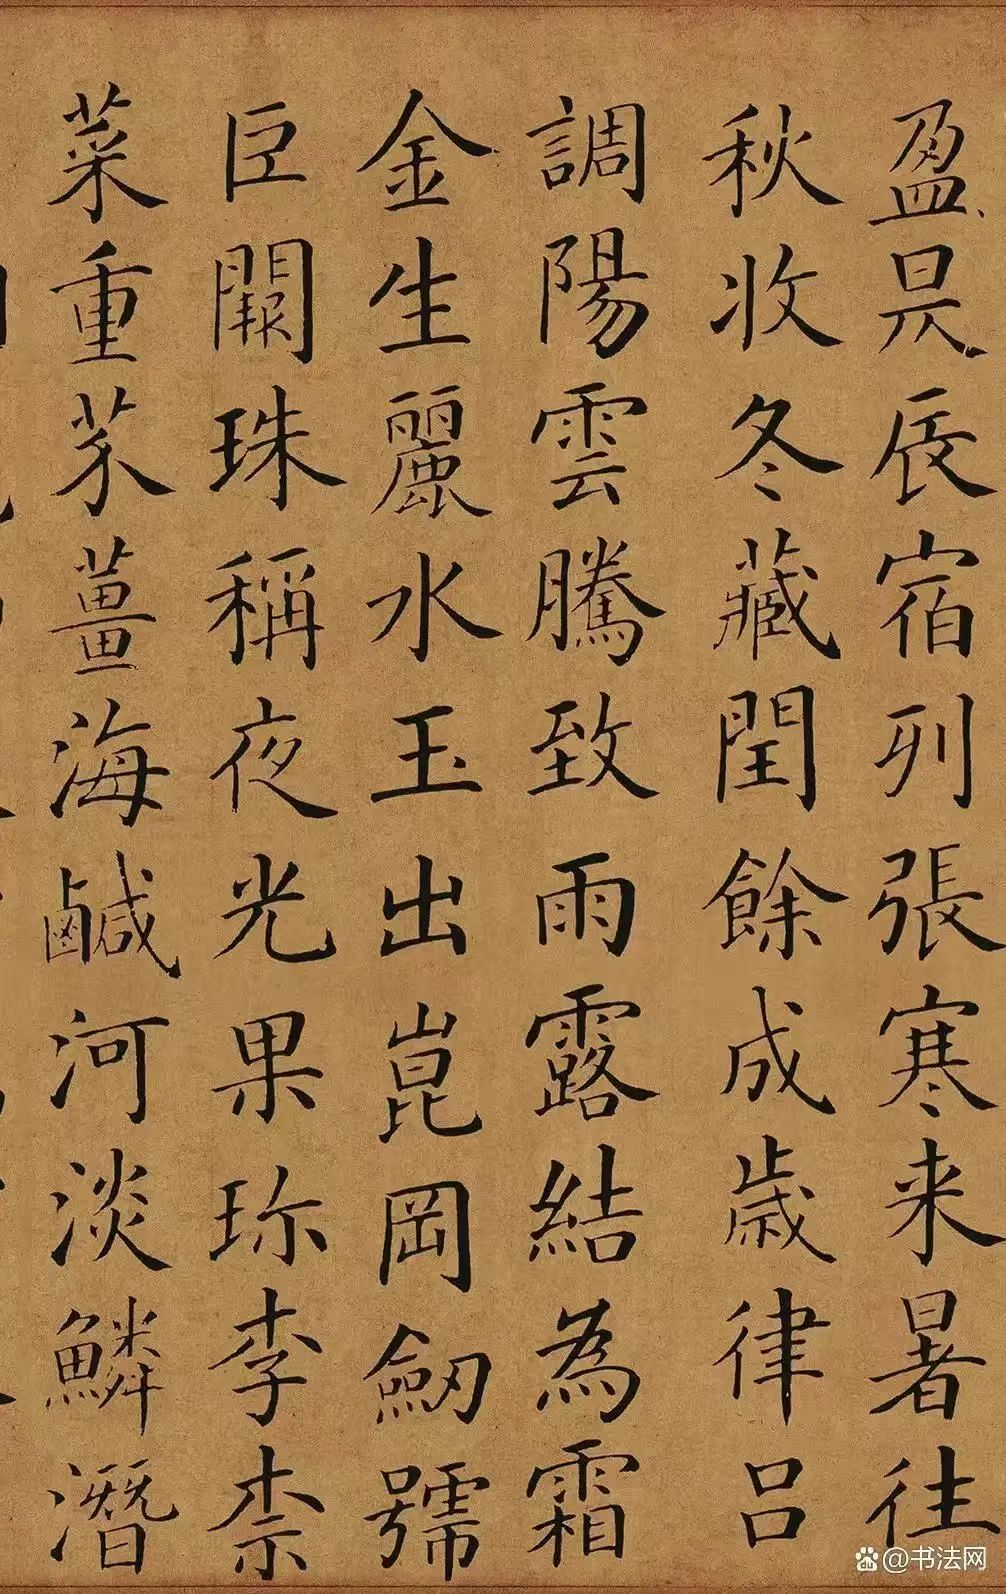 盈昃辰宿列張寒来暑往
秋收冬藏閏餘成歲律吕
調陽雲騰致雨露結為霜
金生麗水玉出崑岡劒號
巨闕珠稱夜光果珎李柰
菜重芥薑海鹹河淡鱗潛
@书法网